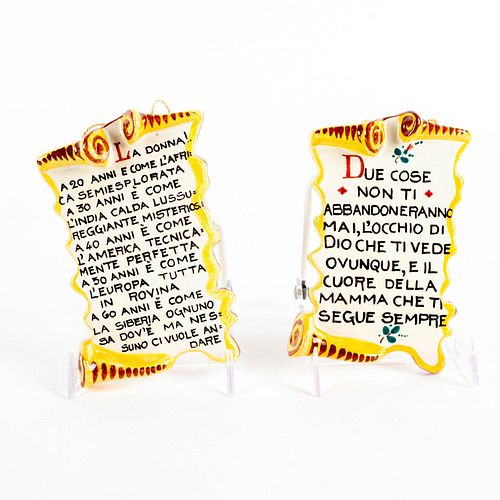 LA DONNA!
A 20 ANNI È COME L'AFRI-
CA SEMIESPLORATA
A 30 ANNI È COME
L'INDIA CALDA LUSSU-
REGGIANTE MISTERIOS.
A 40 ANNI È COME
L'AMERICA TECNICA-
MENTE PERFETTA
A 50 ANNI È COME
L'EUROPA TUTTA
IN ROVINA
A 60 ANNI È COME
LA SIBERIA OGNUNO
SA DOV'È MA NES-
SUNO CI VUOLE AN-
DARE
DUE COSE
NON TI
ABBANDONERANNO
MAI, L'OCCHIO DI
DIO CHE TI VEDE
OVUNQUE, E IL
CUORE DELLA
MAMMA CHE TI
SEGUE SEMPRE